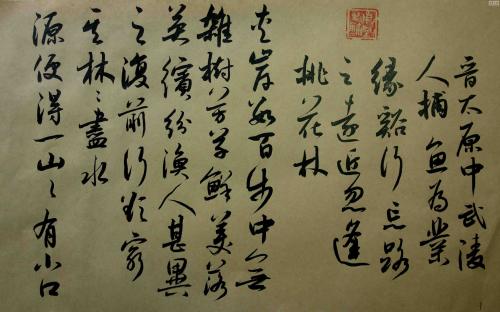 晋太原中武陵
人捕魚為業
緣谿行忘路
之遠近忽逢
桃花林
夾岸數百步中無
雜樹芳草鮮美落
英繽紛漁人甚異
之復前行欲窮
其林〻盡水
源便得一山〻有小口